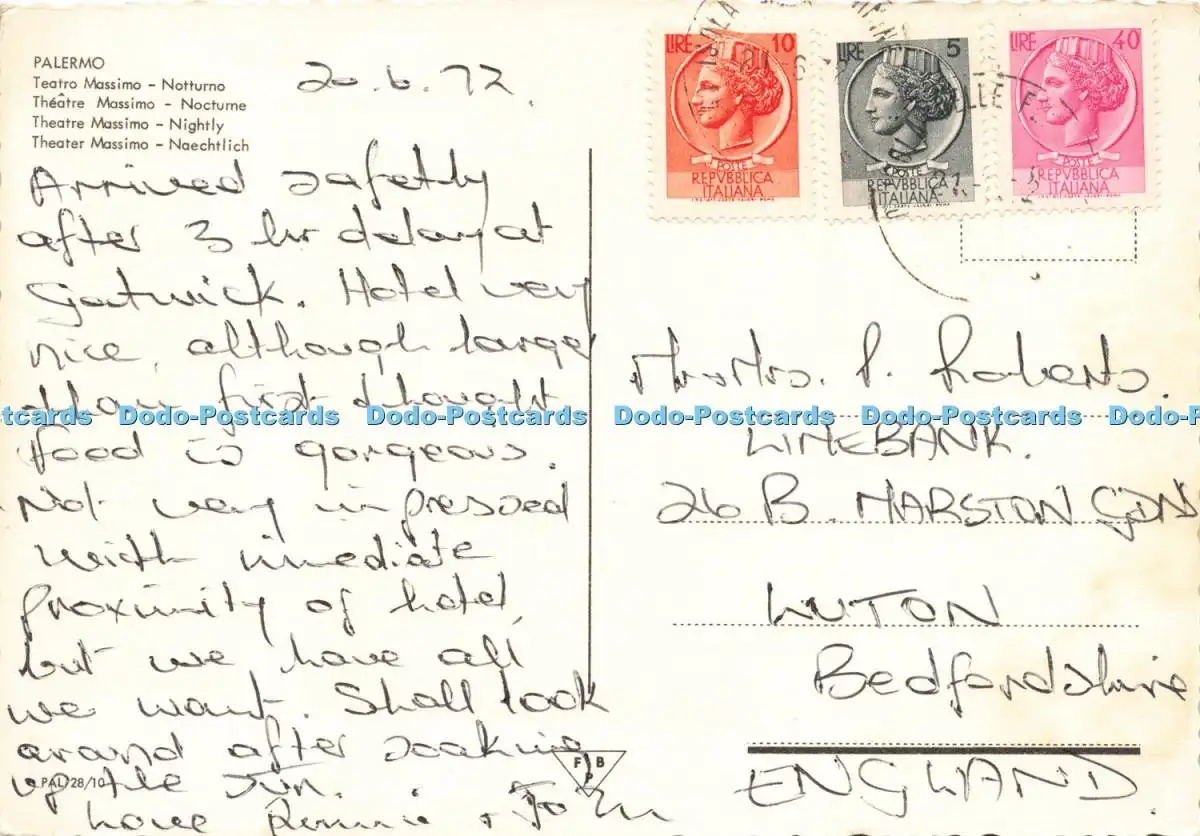 PALERMO
Teatro Massimo - Notturno
Théâtre Massimo - Nocturne
Theatre Massimo - Nightly
Theater Massimo - Naechtlich
20.6.72.
Arrived safetly
after 3 hr delay at
gatwick. Hotel very
nice, although larger
than first thought
food is gorgeous.
Not very impressed
with imediate
proximity of hotel
but we have all
we want. Shall look
around after soaking
up the sun.
PAL 28/10
F B P
LIRE 10
POSTE
REPVBBLICA
ITALIANA
LIRE 5
POSTE
REPVBBLICA
ITALIANA
LIRE 40
POSTE
REPVBBLICA
ITALIANA
Mrs. P. Roberts.
LIMEBANK.
26 B. MARSTON GDN
LUTON
Bedfordshire
ENGLAND.
Dodo-Postcards Dodo-Postcards Dodo-Postcards Dodo-Postcards